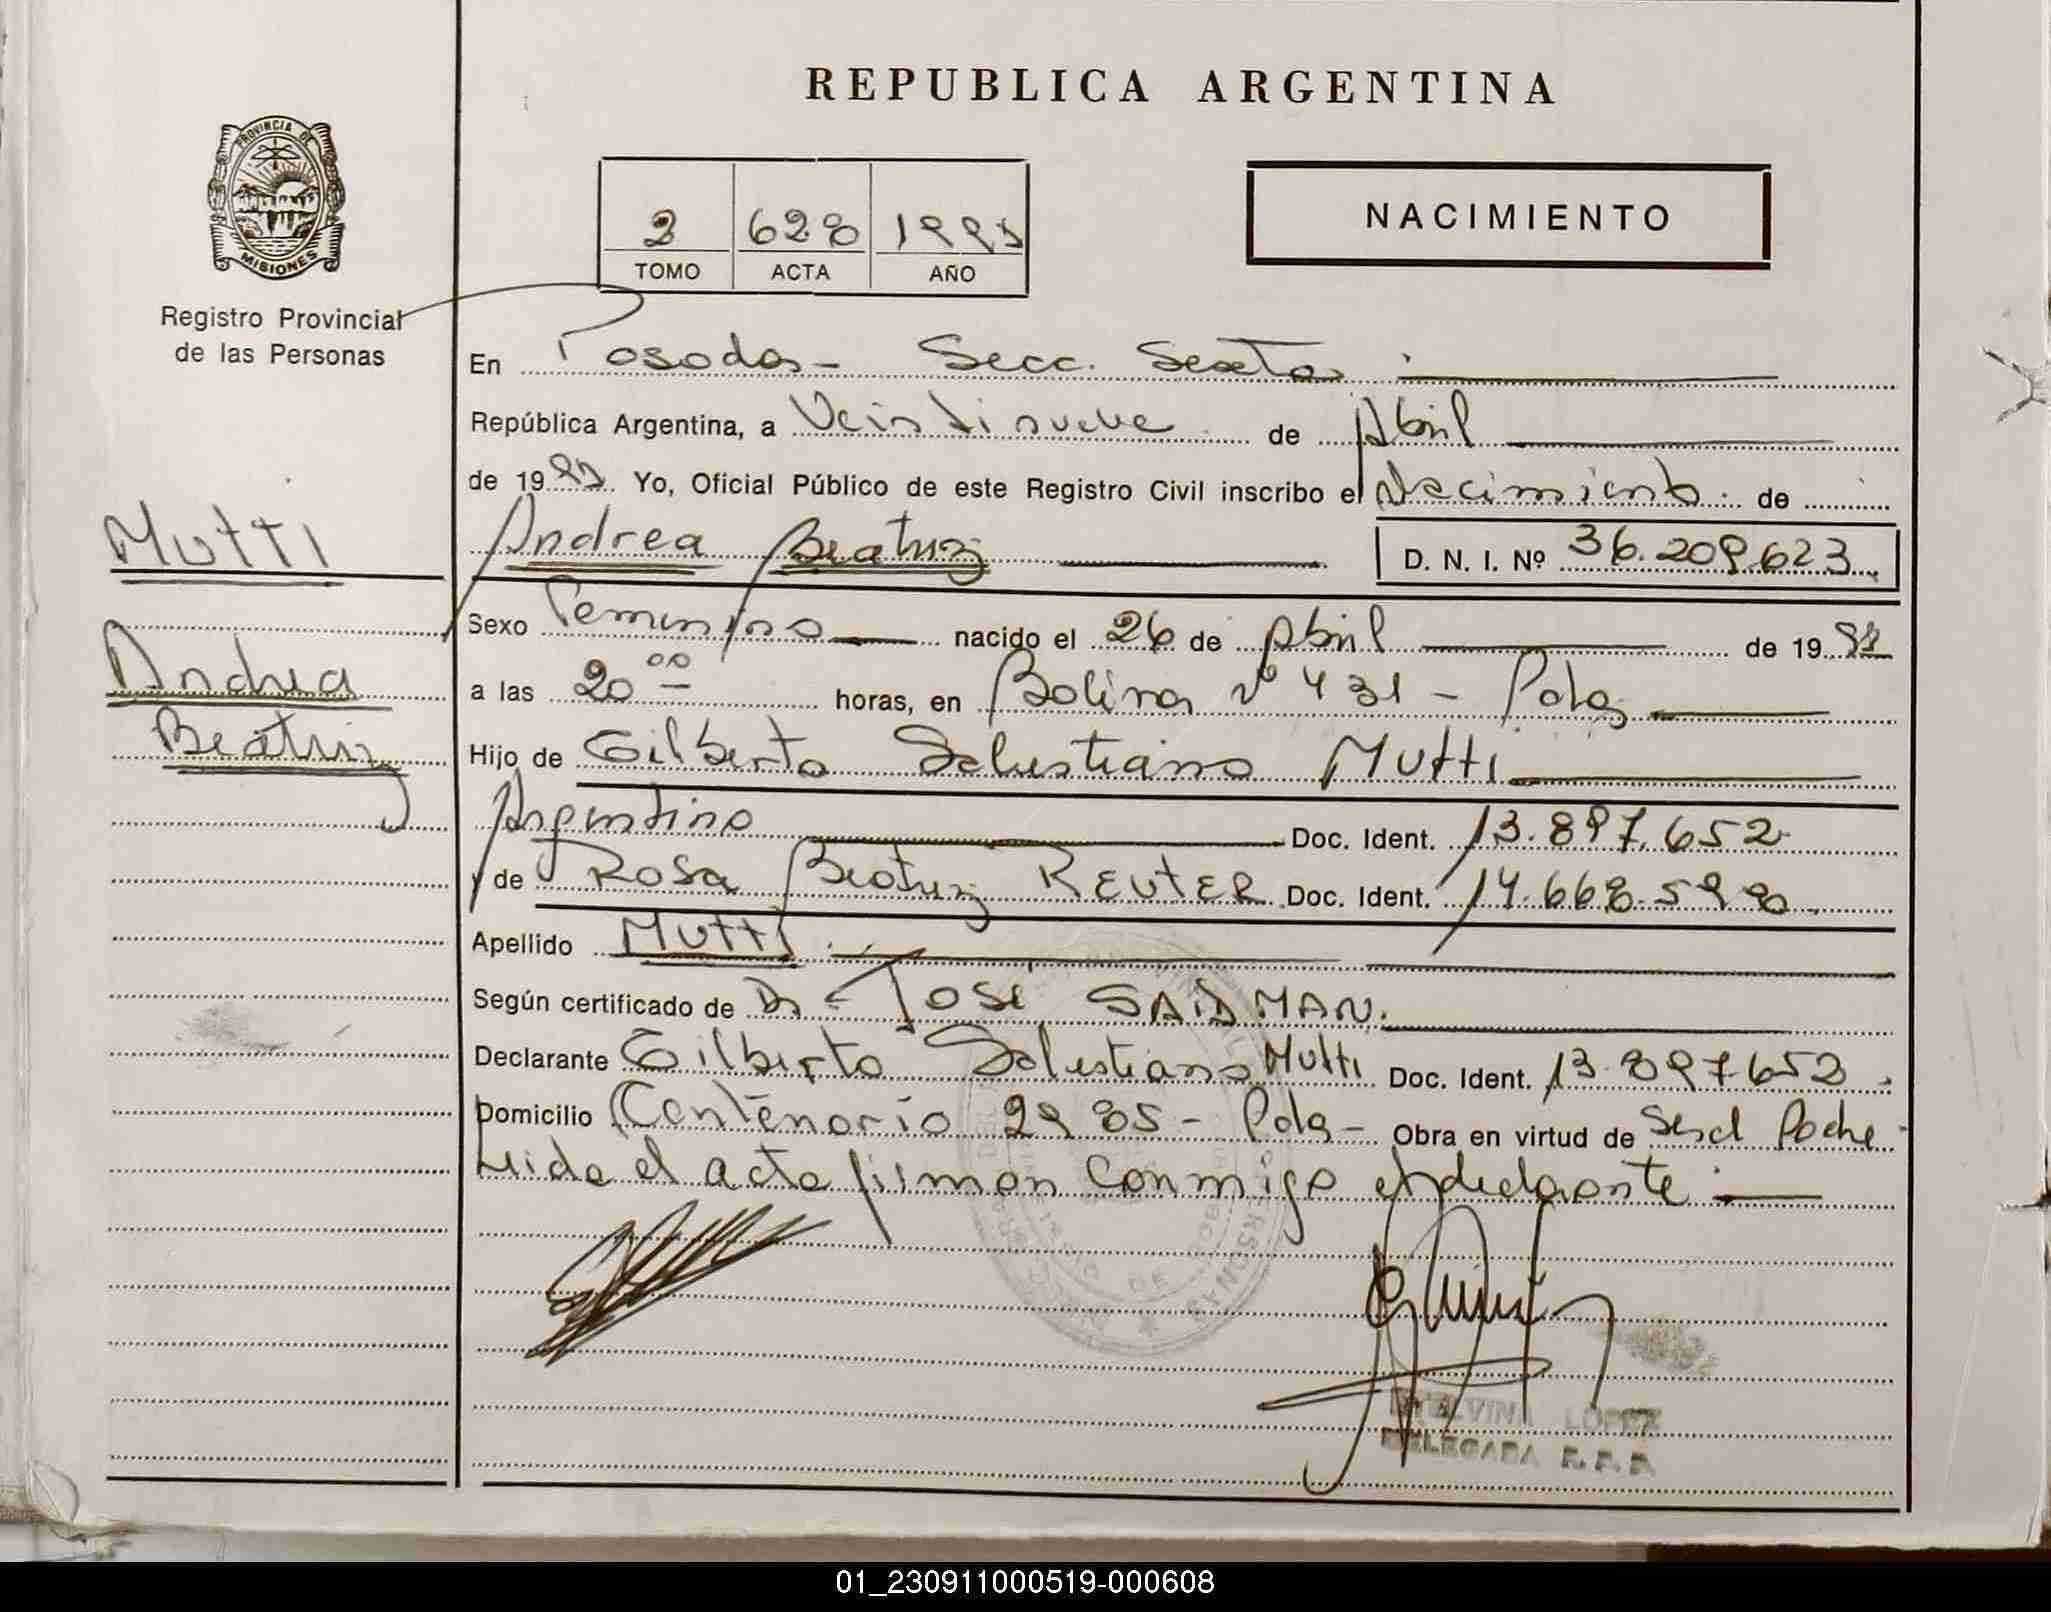 REPUBLICA ARGENTINA
PROVINCIA DE
MISIONES
Registro Provincial
de las Personas
2 628
TOMO ACTA AÑO
NACIMIENTO
En Posadas - Secc. Sexta
República Argentina, a Veintinueve de Abril
de 19 Yo, Oficial Público de este Registro Civil inscribo el Nacimiento de
Mutti
Andrea Beatriz D. N. I. Nº 36.209.623
Sexo Femenino nacido el 26 de Abril de 19
Andrea
Beatriz
a las 20 00 horas, en Bolivar nº 431 - Pdas
Hijo de Gilberto Salustiano Mutti
Argentino Doc. Ident. 13.897.652
y de Rosa Beatriz REUTER Doc. Ident. 14.668.598
Apellido Mutti
Según certificado de Dr. JOSE SAIDMAN.
Declarante Gilberto Salustiano Mutti Doc. Ident. 13.897652
Domicilio Centenario 2985 - Pdas - Obra en virtud de
Leida el acta firman conmigo el declarante
ETELVINA LOPEZ
DELEGADA R.P.P.
01_230911000519-000608